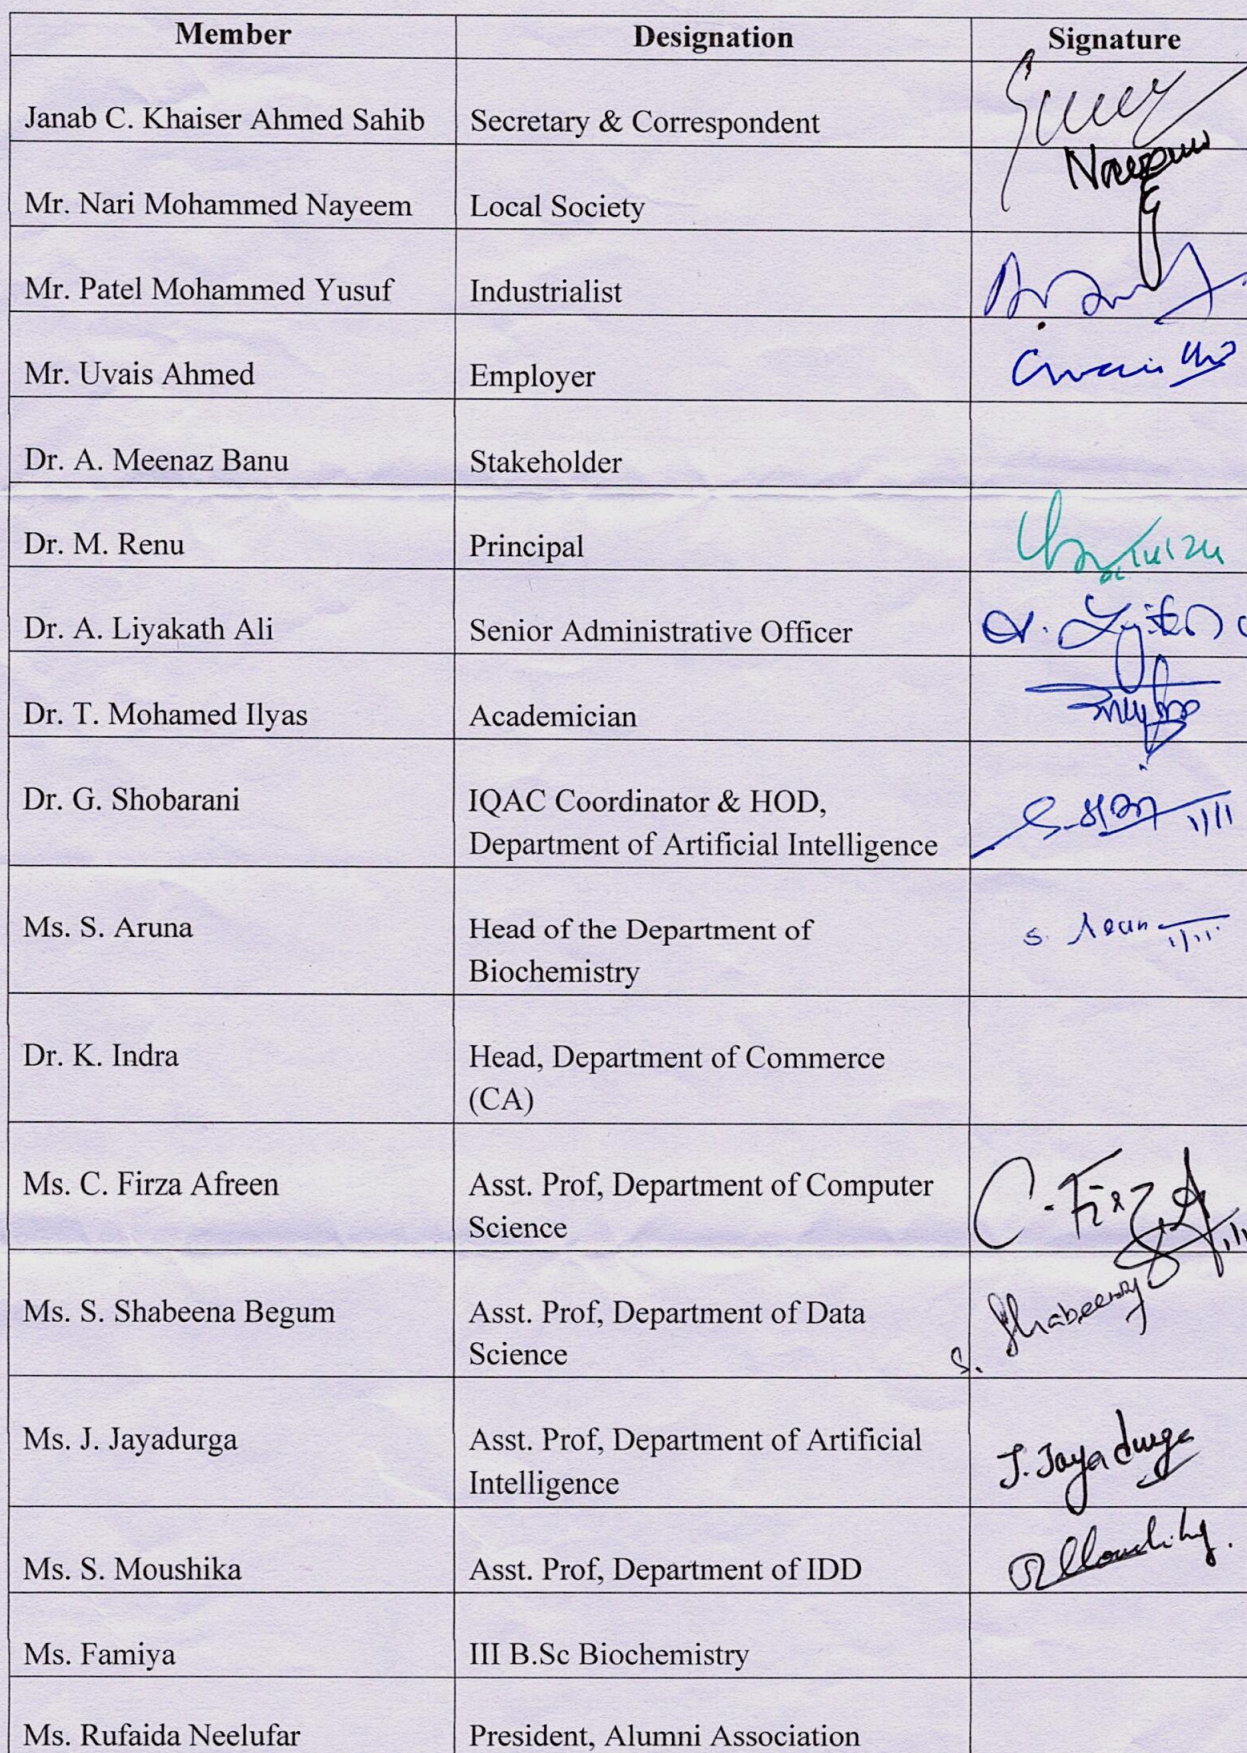 Member Designation Signature
Janab C. Khaiser Ahmed Sahib Secretary & Correspondent
Mr. Nari Mohammed Nayeem Local Society
Mr. Patel Mohammed Yusuf Industrialist
Mr. Uvais Ahmed Employer
Dr. A. Meenaz Banu Stakeholder
Dr. M. Renu Principal
Dr. A. Liyakath Ali Senior Administrative Officer
Dr. T. Mohamed Ilyas Academician
Dr. G. Shobarani IQAC Coordinator & HOD,
Department of Artificial Intelligence
Ms. S. Aruna Head of the Department of
Biochemistry
Dr. K. Indra Head, Department of Commerce
(CA)
Ms. C. Firza Afreen Asst. Prof, Department of Computer C. Firza
Science
Ms. S. Shabeena Begum Asst. Prof, Department of Data S. Shabeena
Science
Ms. J. Jayadurga Asst. Prof, Department of Artificial J. Jayadurga
Intelligence
Ms. S. Moushika Asst. Prof, Department of IDD
Ms. Famiya III B.Sc Biochemistry
Ms. Rufaida Neelufar President, Alumni Association